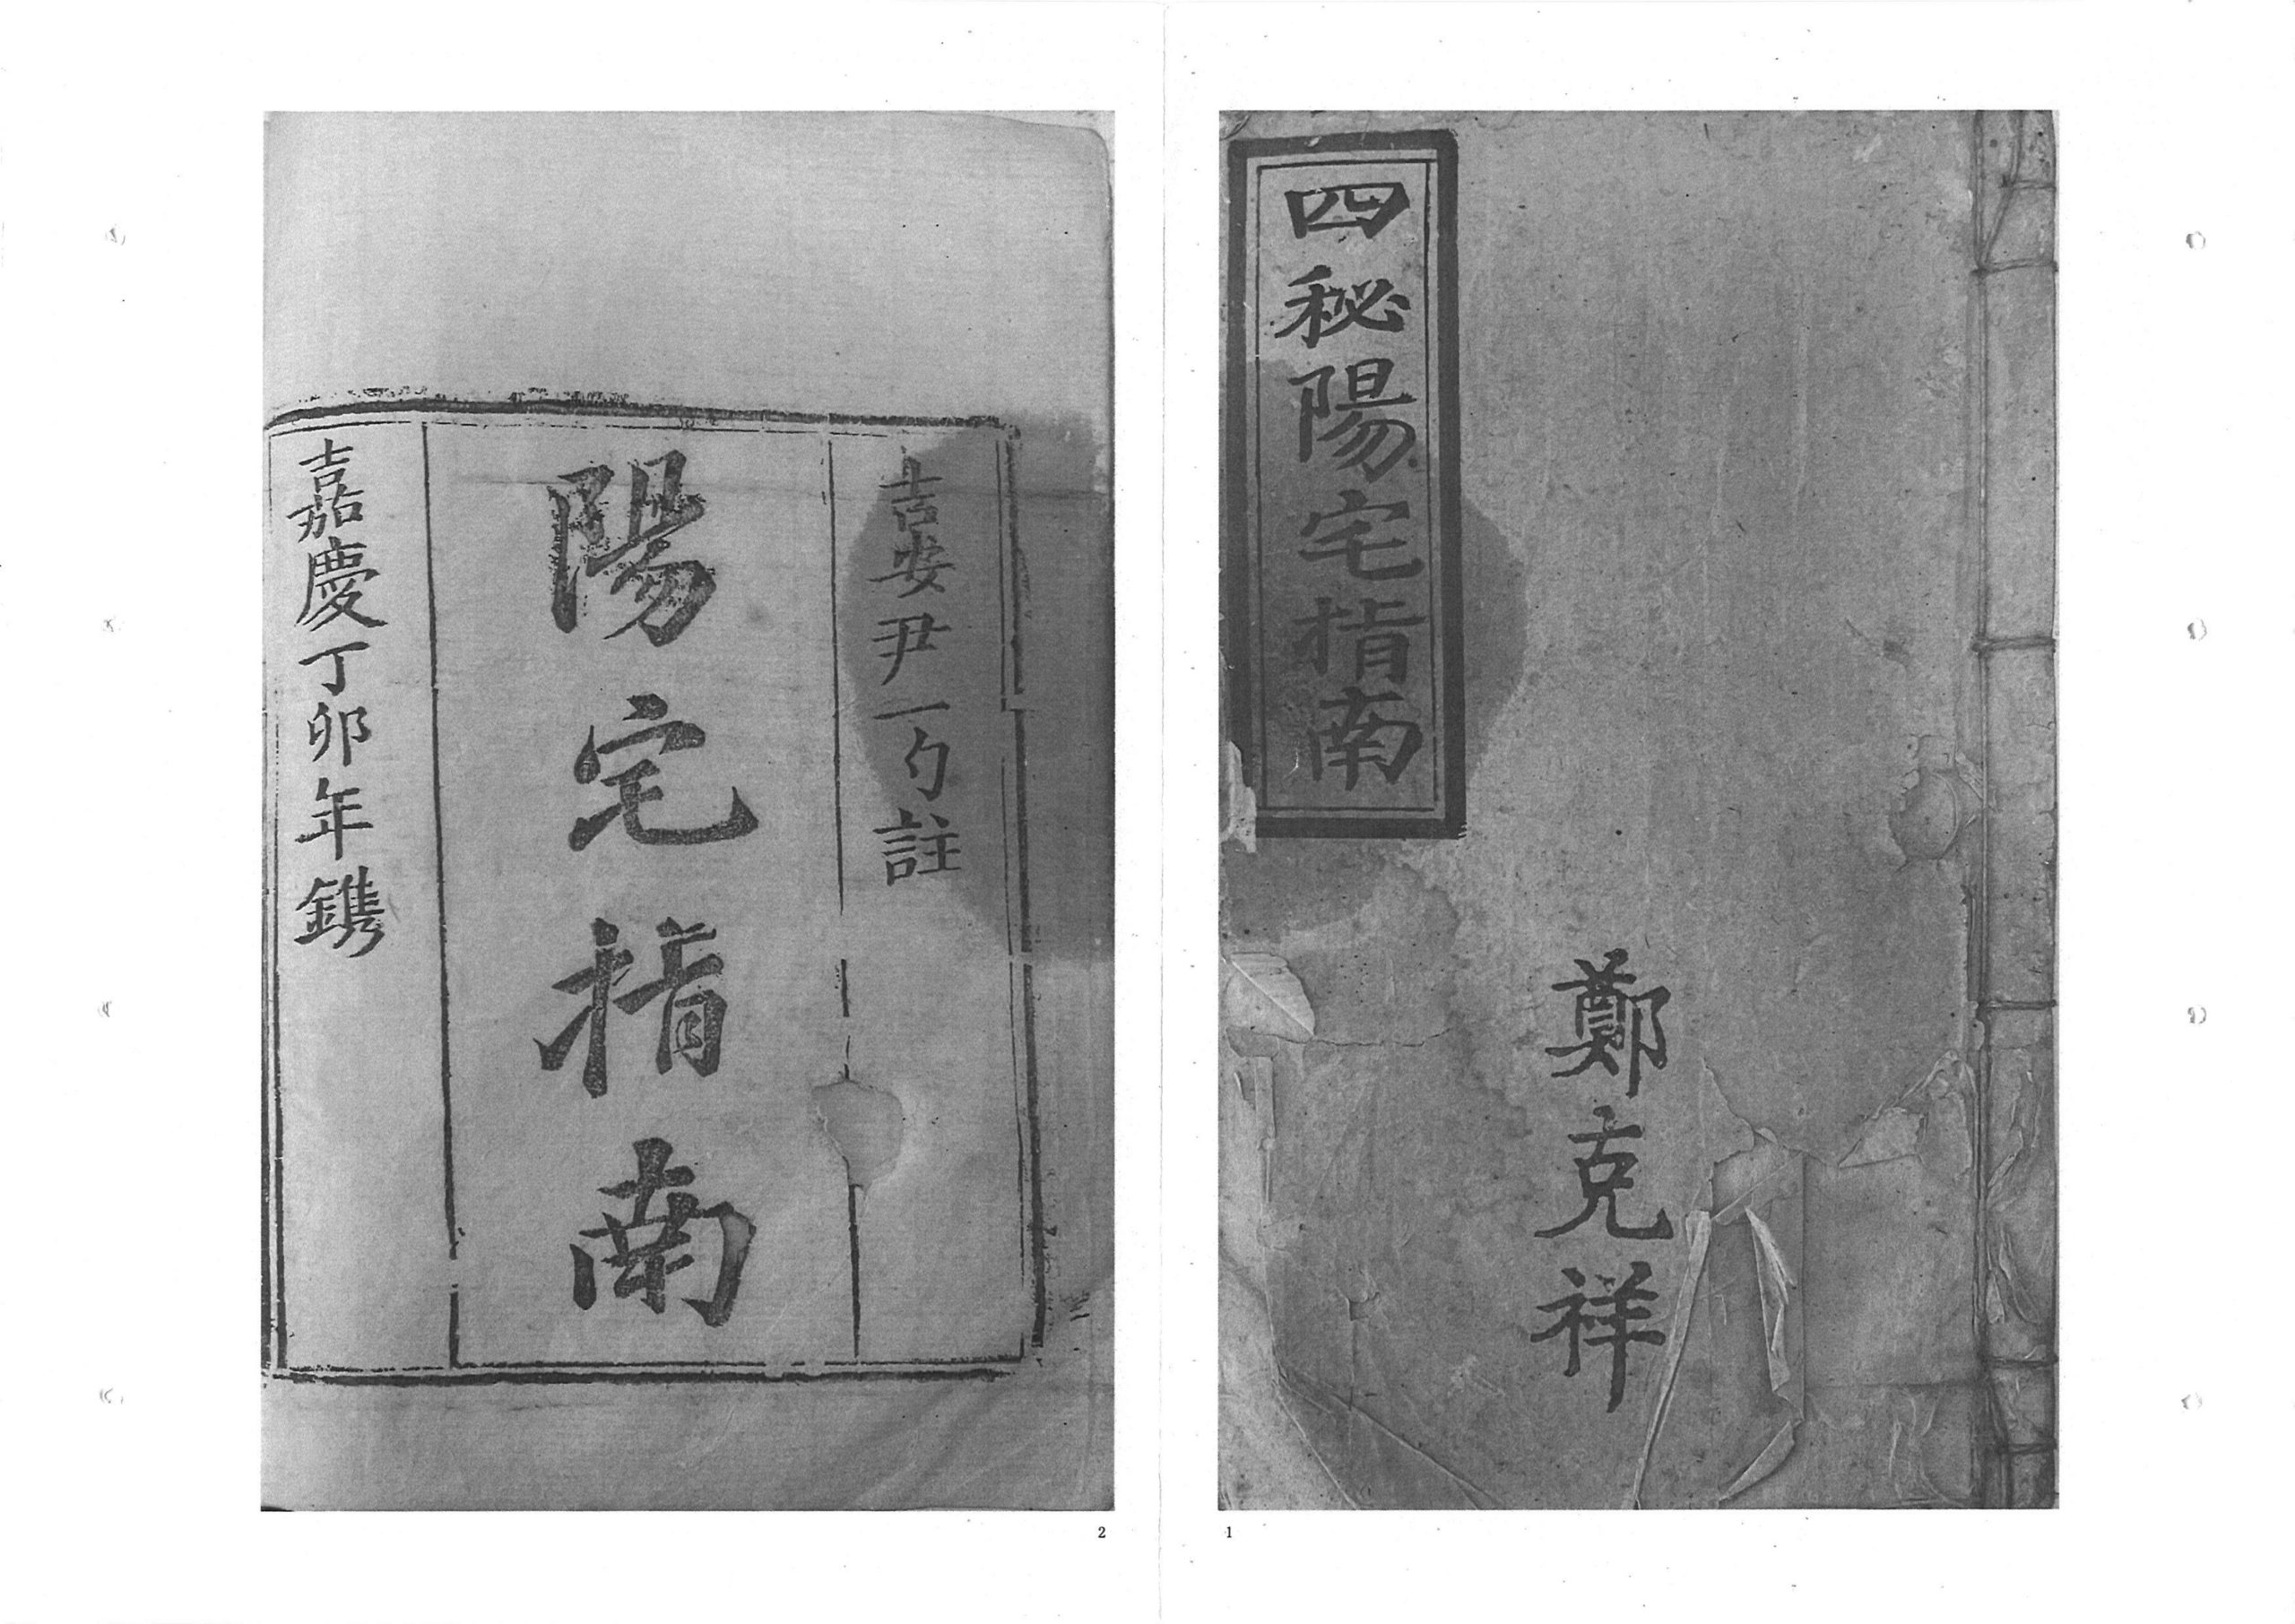 四秘陽宅指南
鄭克祥
1
吉安尹一勺註
陽宅指南
嘉慶丁卯年鐫
2